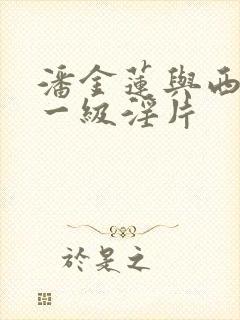 潘金蓮與西
一級淫片
於是之